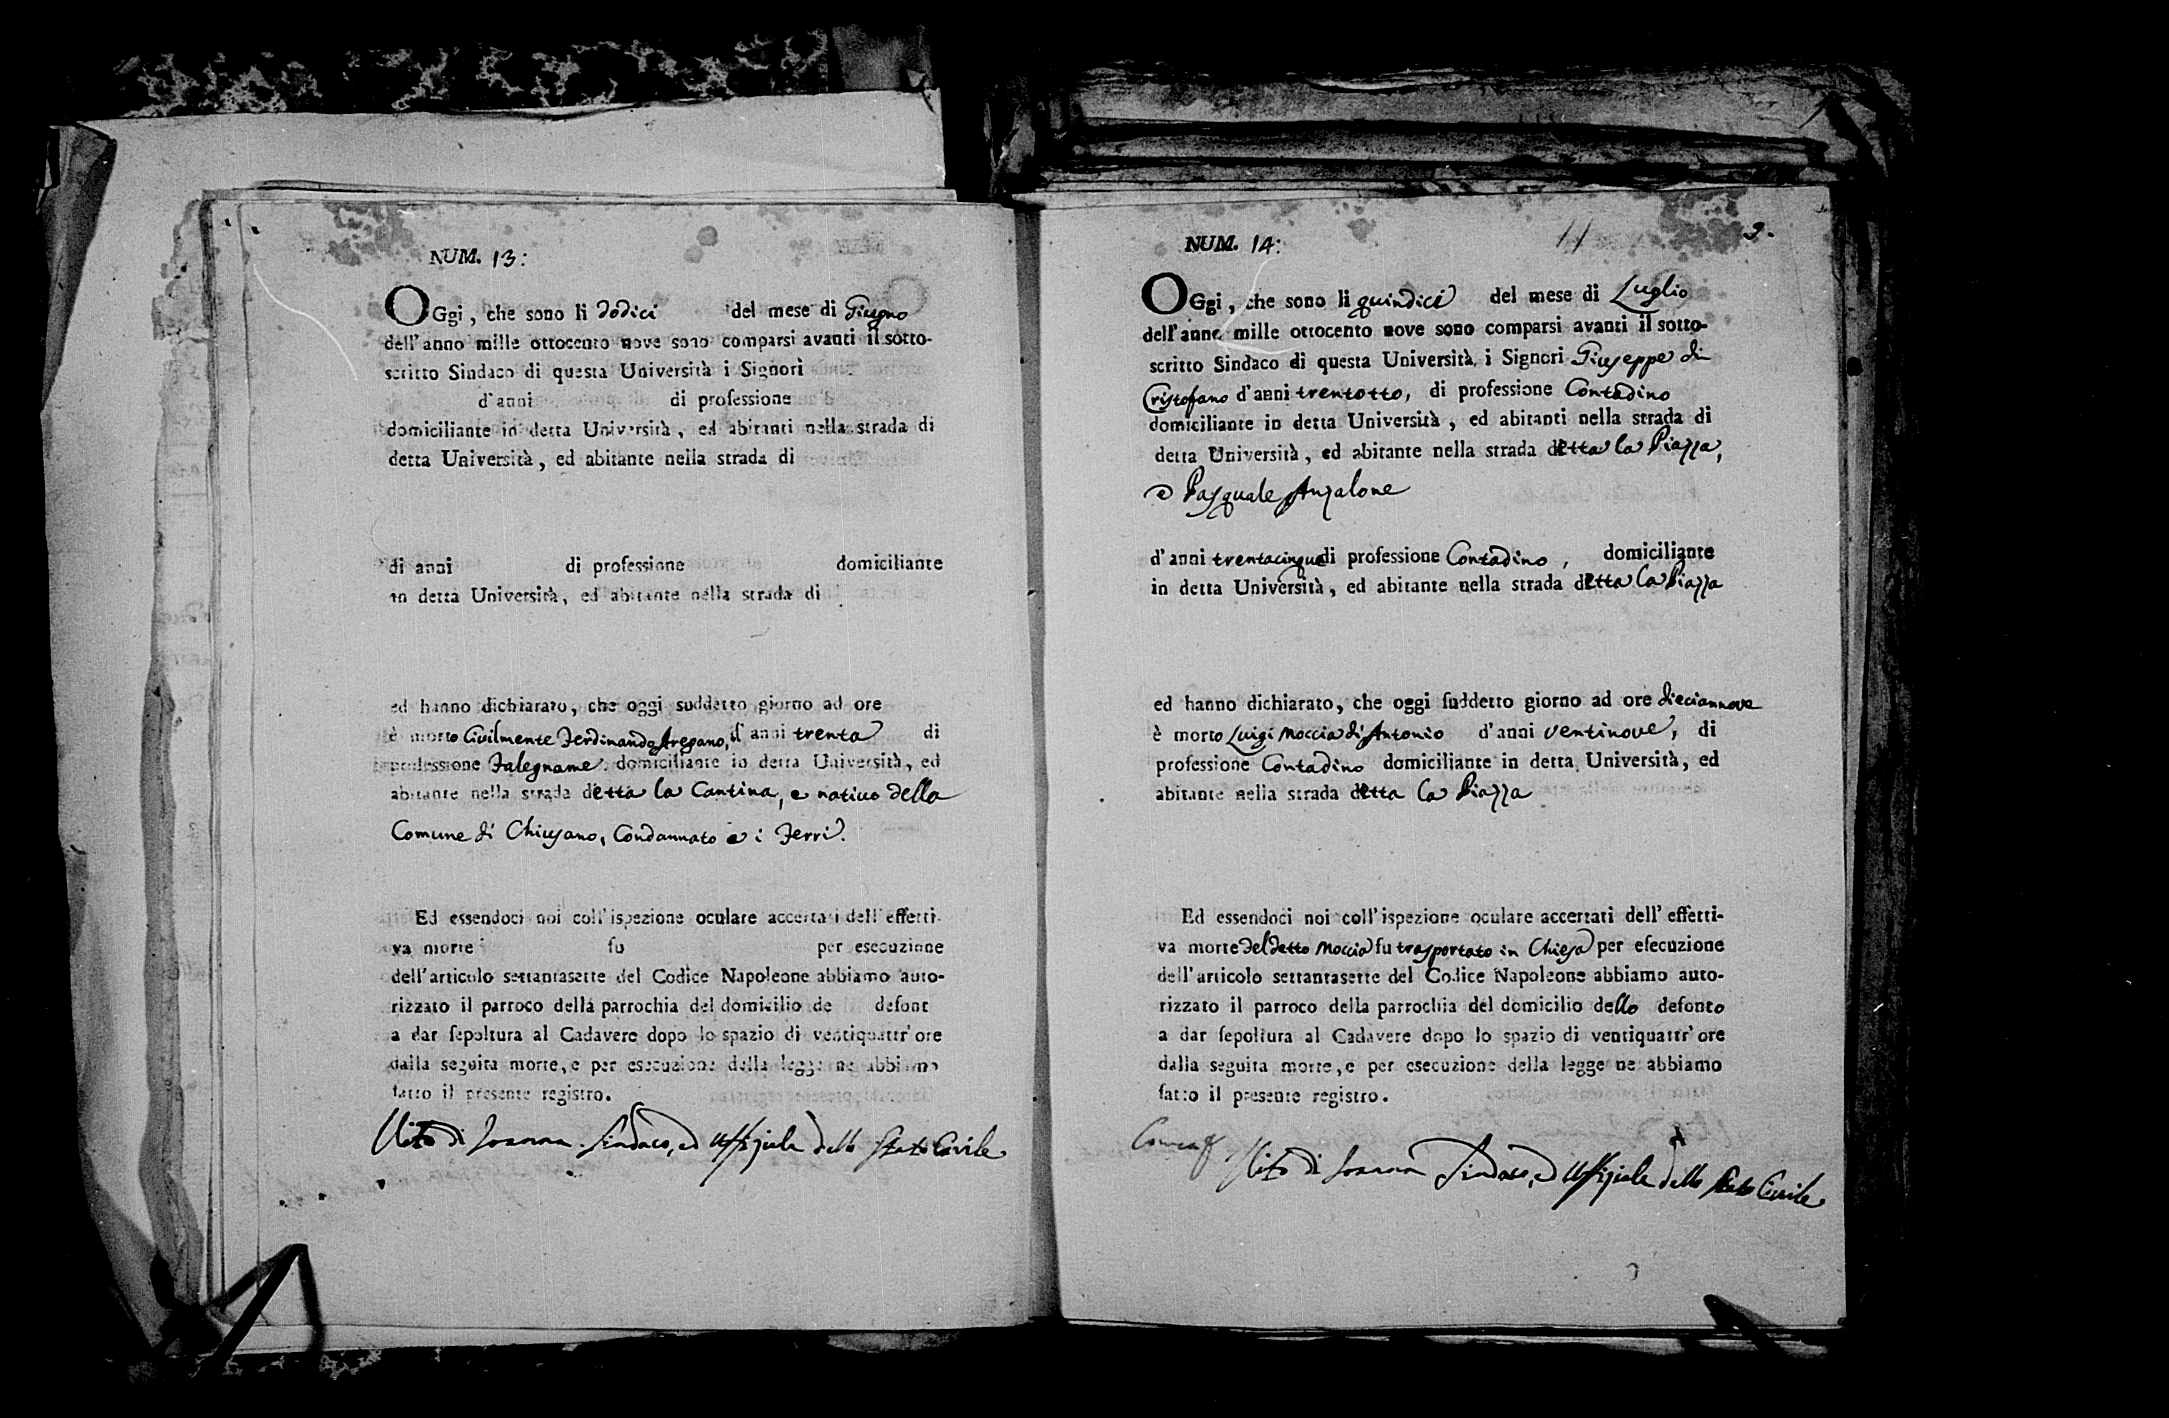 NUM. 13:
OGgi, che sono li dodici del mese di Giugno
dell'anno mille ottocento nove sono comparsi avanti il sotto-
scritto Sindaco di questa Università i Signori
d'anni di professione
domiciliante in detta Università, ed abitanti nella strada di
detta Università, ed abitante nella strada di
di anni di professione domiciliante
in detta Università, ed abitante nella strada di
ed hanno dichiarato, che oggi suddetto giorno ad ore
è morto Civilmente Ferdinando d'anni trenta di
professione Falegname domiciliante in detta Università, ed
abitante nella strada detta la Cantina, e nativo della
Comune di Chiusano, Condannato a i Ferri.
Ed essendoci noi coll'ispezione oculare accertati dell'effetti-
va morte fu per esecuzione
dell'articolo settantasette del Codice Napoleone abbiamo auto-
rizzato il parroco della parrochia del domicilio de defont
a dar sepoltura al Cadavere dopo lo spazio di ventiquattr'ore
dalla seguita morte, e per esecuzione della legge ne abbiamo
fatto il presente registro.
Vito di Ioanna Sindaco, ed Uffiziale dello Stato Civile
NUM. 14:
11
9.
OGgi, che sono li quindici del mese di Luglio
dell'anno mille ottocento nove sono comparsi avanti il sotto-
scritto Sindaco di questa Università i Signori Giuseppe di
Cristofano d'anni trentotto, di professione Contadino
domiciliante in detta Università, ed abitanti nella strada di
detta Università, ed abitante nella strada detta la Piazza,
e Pasquale Anzalone
d'anni trentacinque di professione Contadino, domiciliante
in detta Università, ed abitante nella strada detta la Piazza
ed hanno dichiarato, che oggi suddetto giorno ad ore diecinnove
è morto Luigi Moccia di Antonio d'anni ventinove, di
professione Contadino domiciliante in detta Università, ed
abitante nella strada detta la Piazza
Ed essendoci noi coll'ispezione oculare accertati dell'effetti-
va morte del detto Moccia fu trasportato in Chiesa per esecuzione
dell'articolo settantasette del Codice Napoleone abbiamo auto-
rizzato il parroco della parrochia del domicilio dello defonto
a dar sepoltura al Cadavere dopo lo spazio di ventiquattr'ore
dalla seguita morte, e per esecuzione della legge ne abbiamo
fatto il presente registro.
Vito di Ioanna Sindaco, ed Uffiziale dello Stato Civile